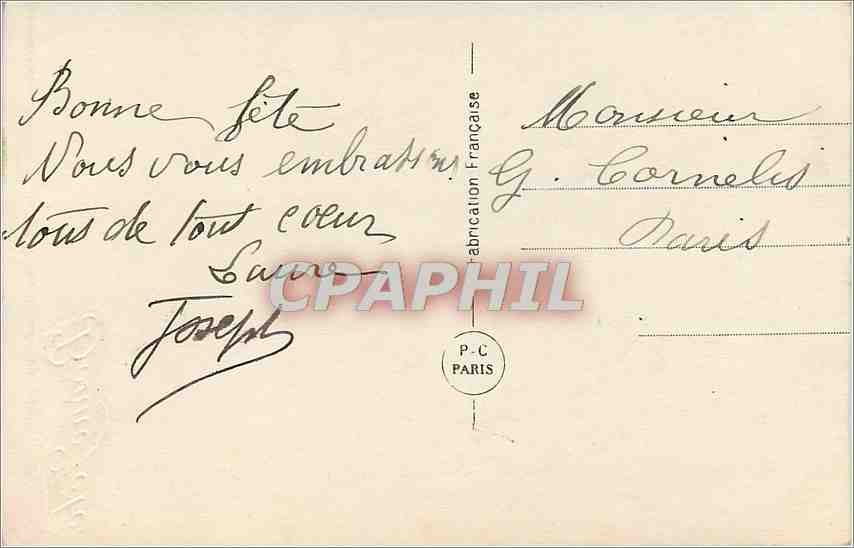 Bonne fête
Nous vous embrassons
tous de tout coeur
Laure
Joseph
Fabrication Française
P-C
PARIS
Monsieur
G. Cornelis
Paris
CPAPHIL